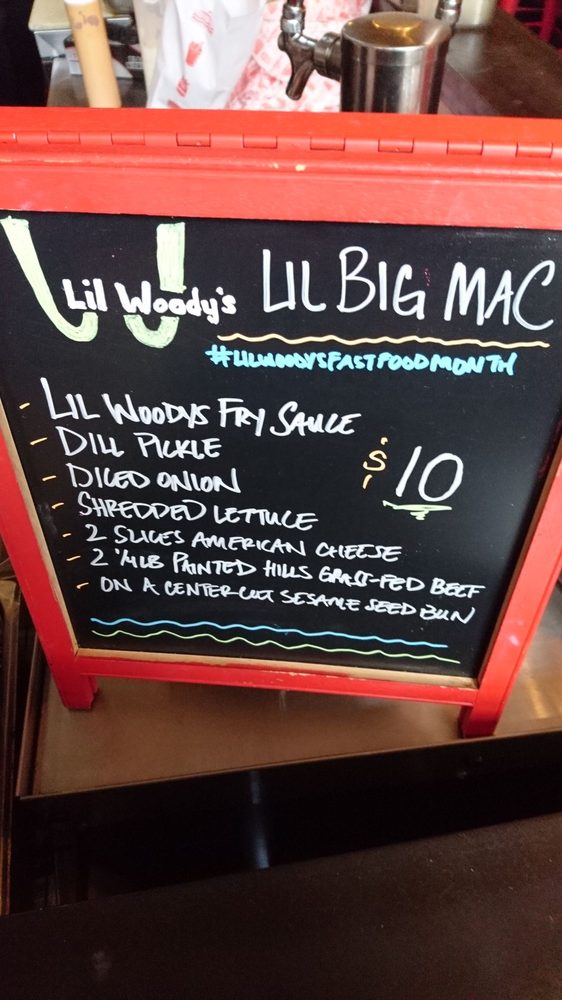 Lil Woody's LIL BIG MAC
#LILWOODYSFASTFOODMONTH
- LIL WOODYS FRY SAUCE
- DILL PICKLE
- DICED ONION
$10
- SHREDDED LETTUCE
- 2 SLICES AMERICAN CHEESE
- 2 1/4LB PAINTED HILLS GRASS-FED BEEF
- ON A CENTER CUT SESAME SEED BUN